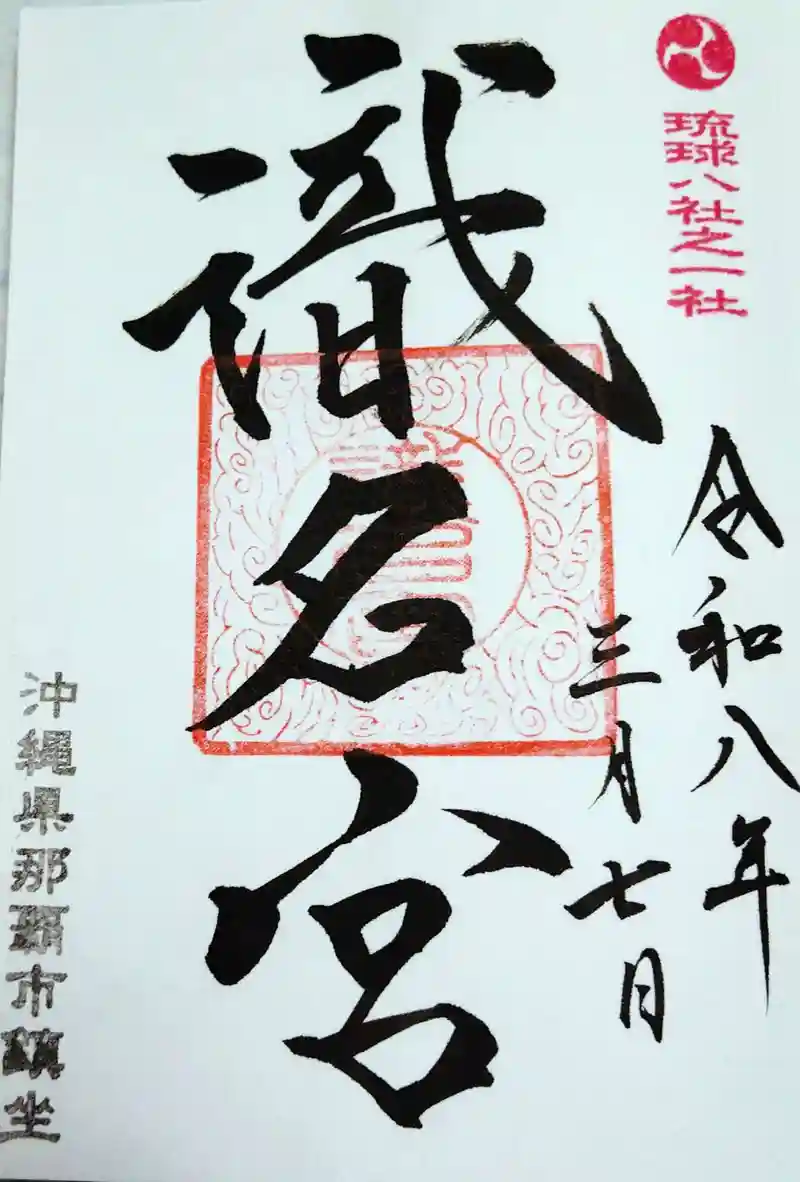 琉球八社之一社
令和八年
三月七日
識名宮
沖縄県那覇市鎮坐